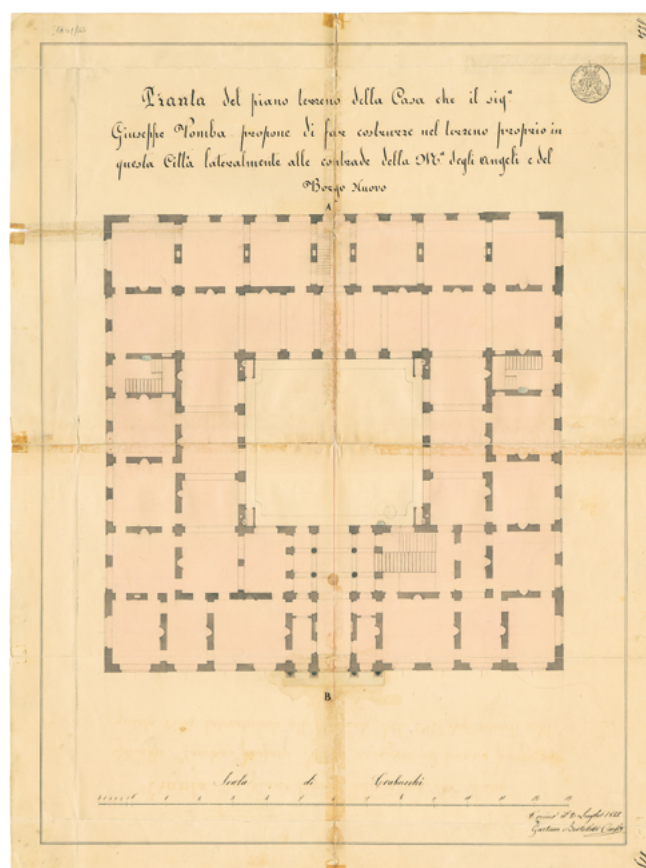 Pianta del piano terreno della Casa che il sig.r
Giuseppe Pomba propone di far costrurre nel terreno proprio in
questa Città lateralmente alle contrade della M.a degli Angeli e del
Borgo Nuovo
A
B
Scala di Trabucchi
Luglio